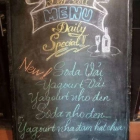 MENU
Daily
Special
New Soda Vải
Yagourt Vải
Yagourt nho đen
Soda nho đen
Yagourt nha đam hạt chia